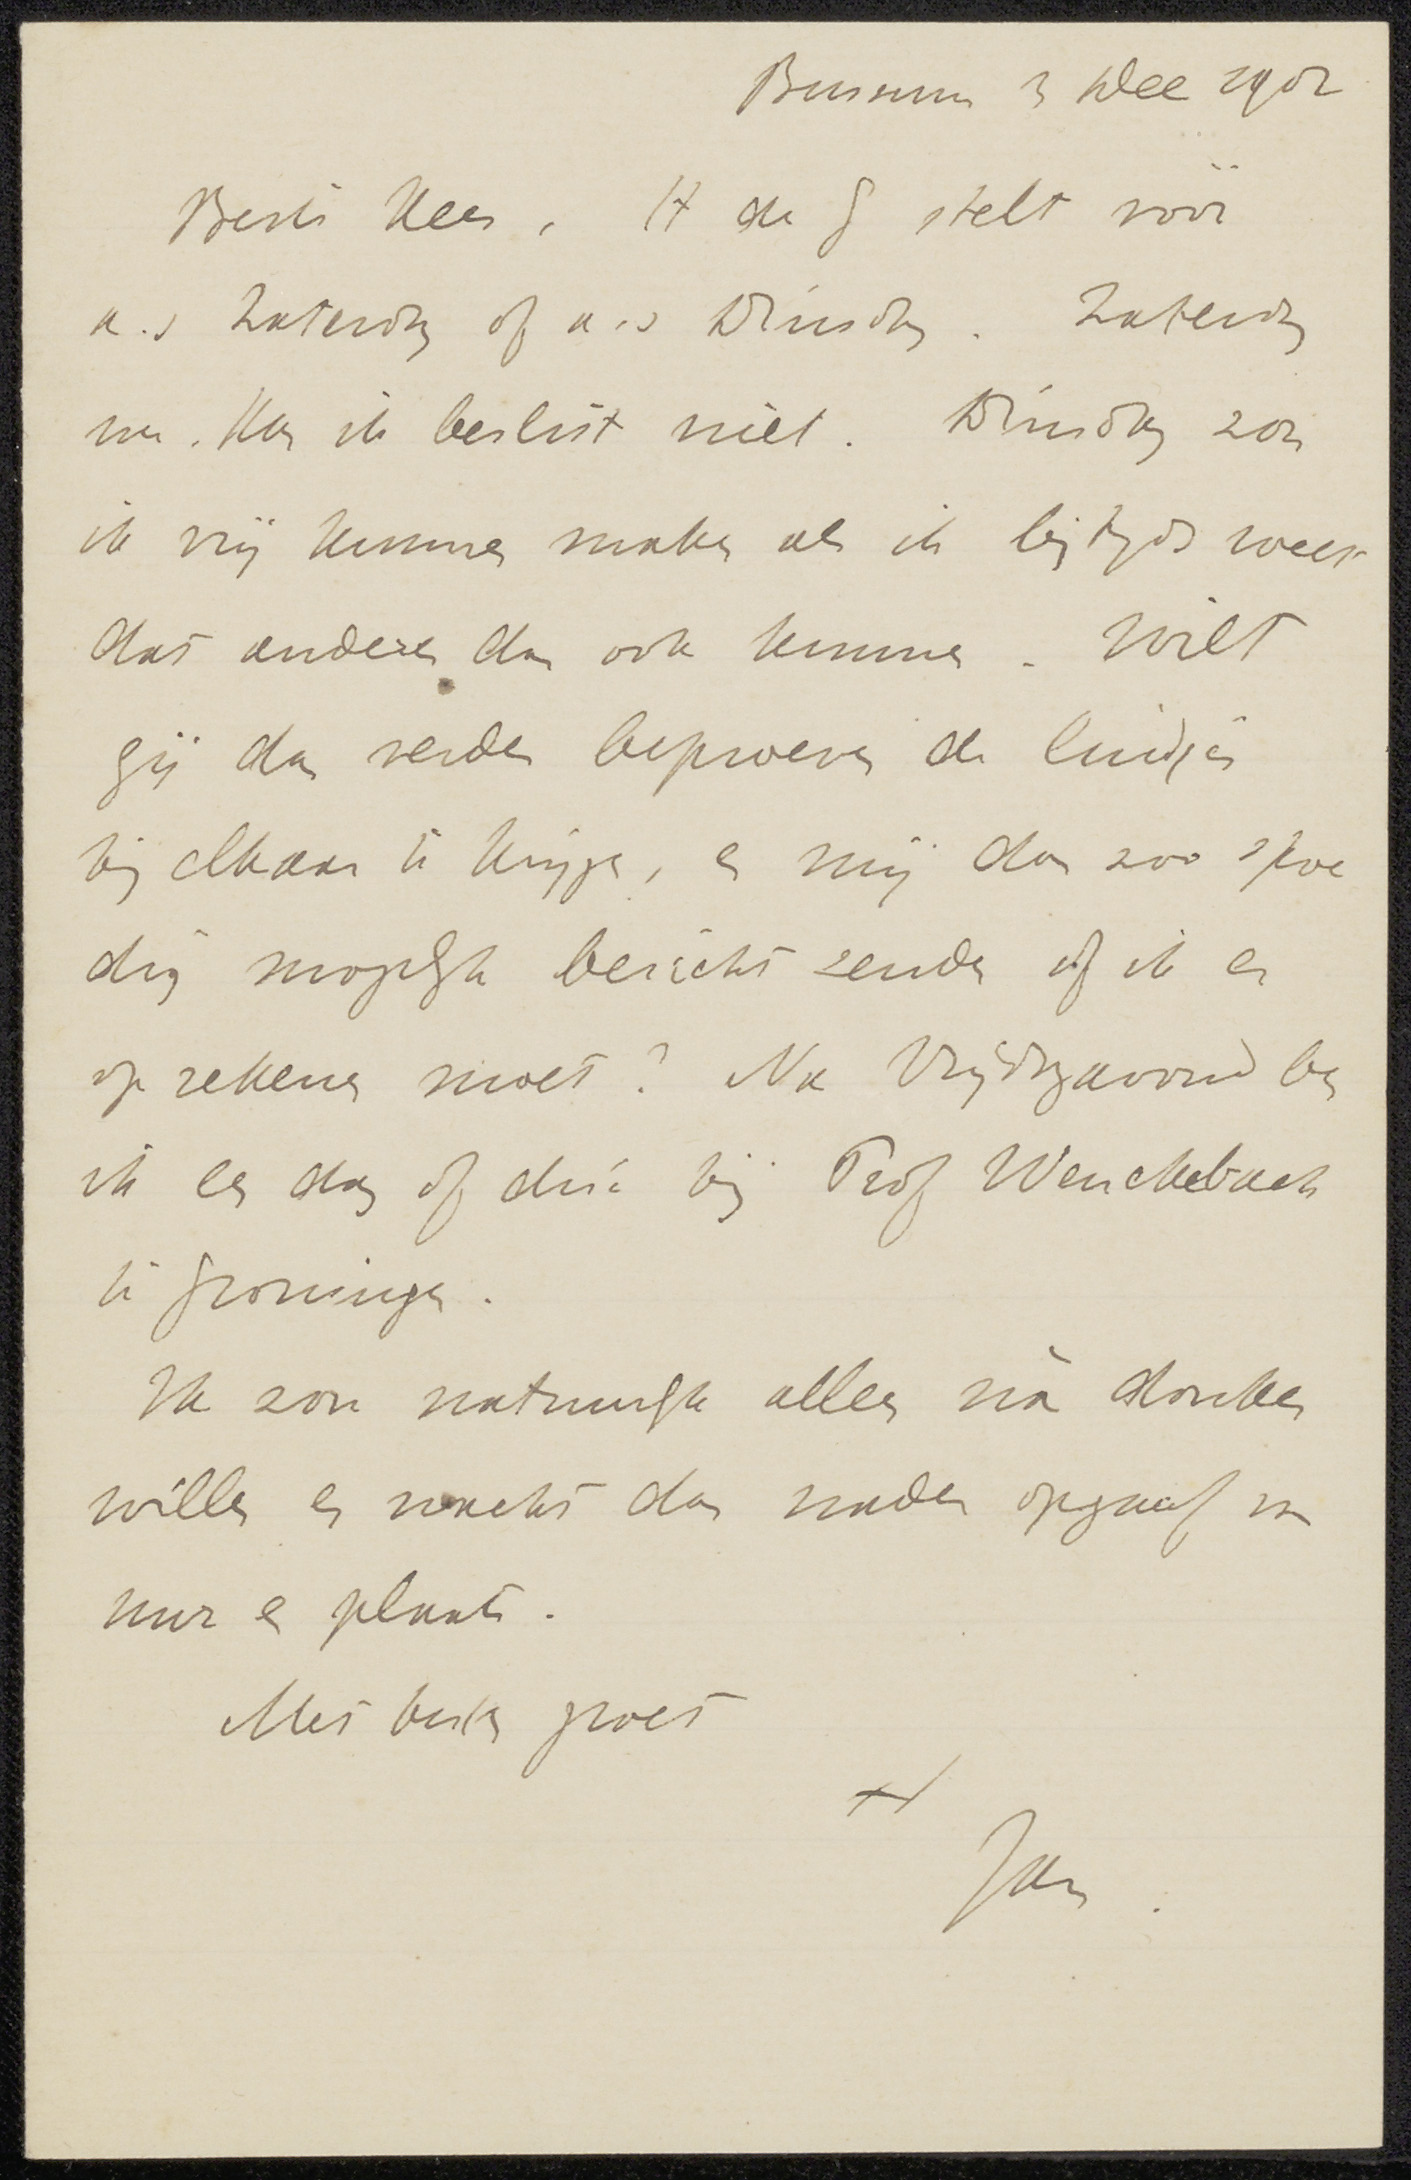 Bussum 3 Dec 1902
Beste Kees, H de G stelt vóór
a.s Zaterdag of a.s Dinsdag. Zaterdag
nu. Kan ik beslist niet. Dinsdag zou
ik vrij kunnen maken als ik bijtijds weet
dat anderen dan ook kunnen. Wilt
gij dan verder beproeven de luidjes
bij elkaar te krijgen, en mij dan zoo spoe
dig mogelijk bericht zenden of ik er
op rekenen moet? Na Vrijdagavond ben
ik een dag of drie bij Prof Wenckebach
te Groningen.
Ik zou natuurlijk alleen ná donker
willen en wacht dan nader opgaaf van
uur en plaats.
Met besten groet
Jan.